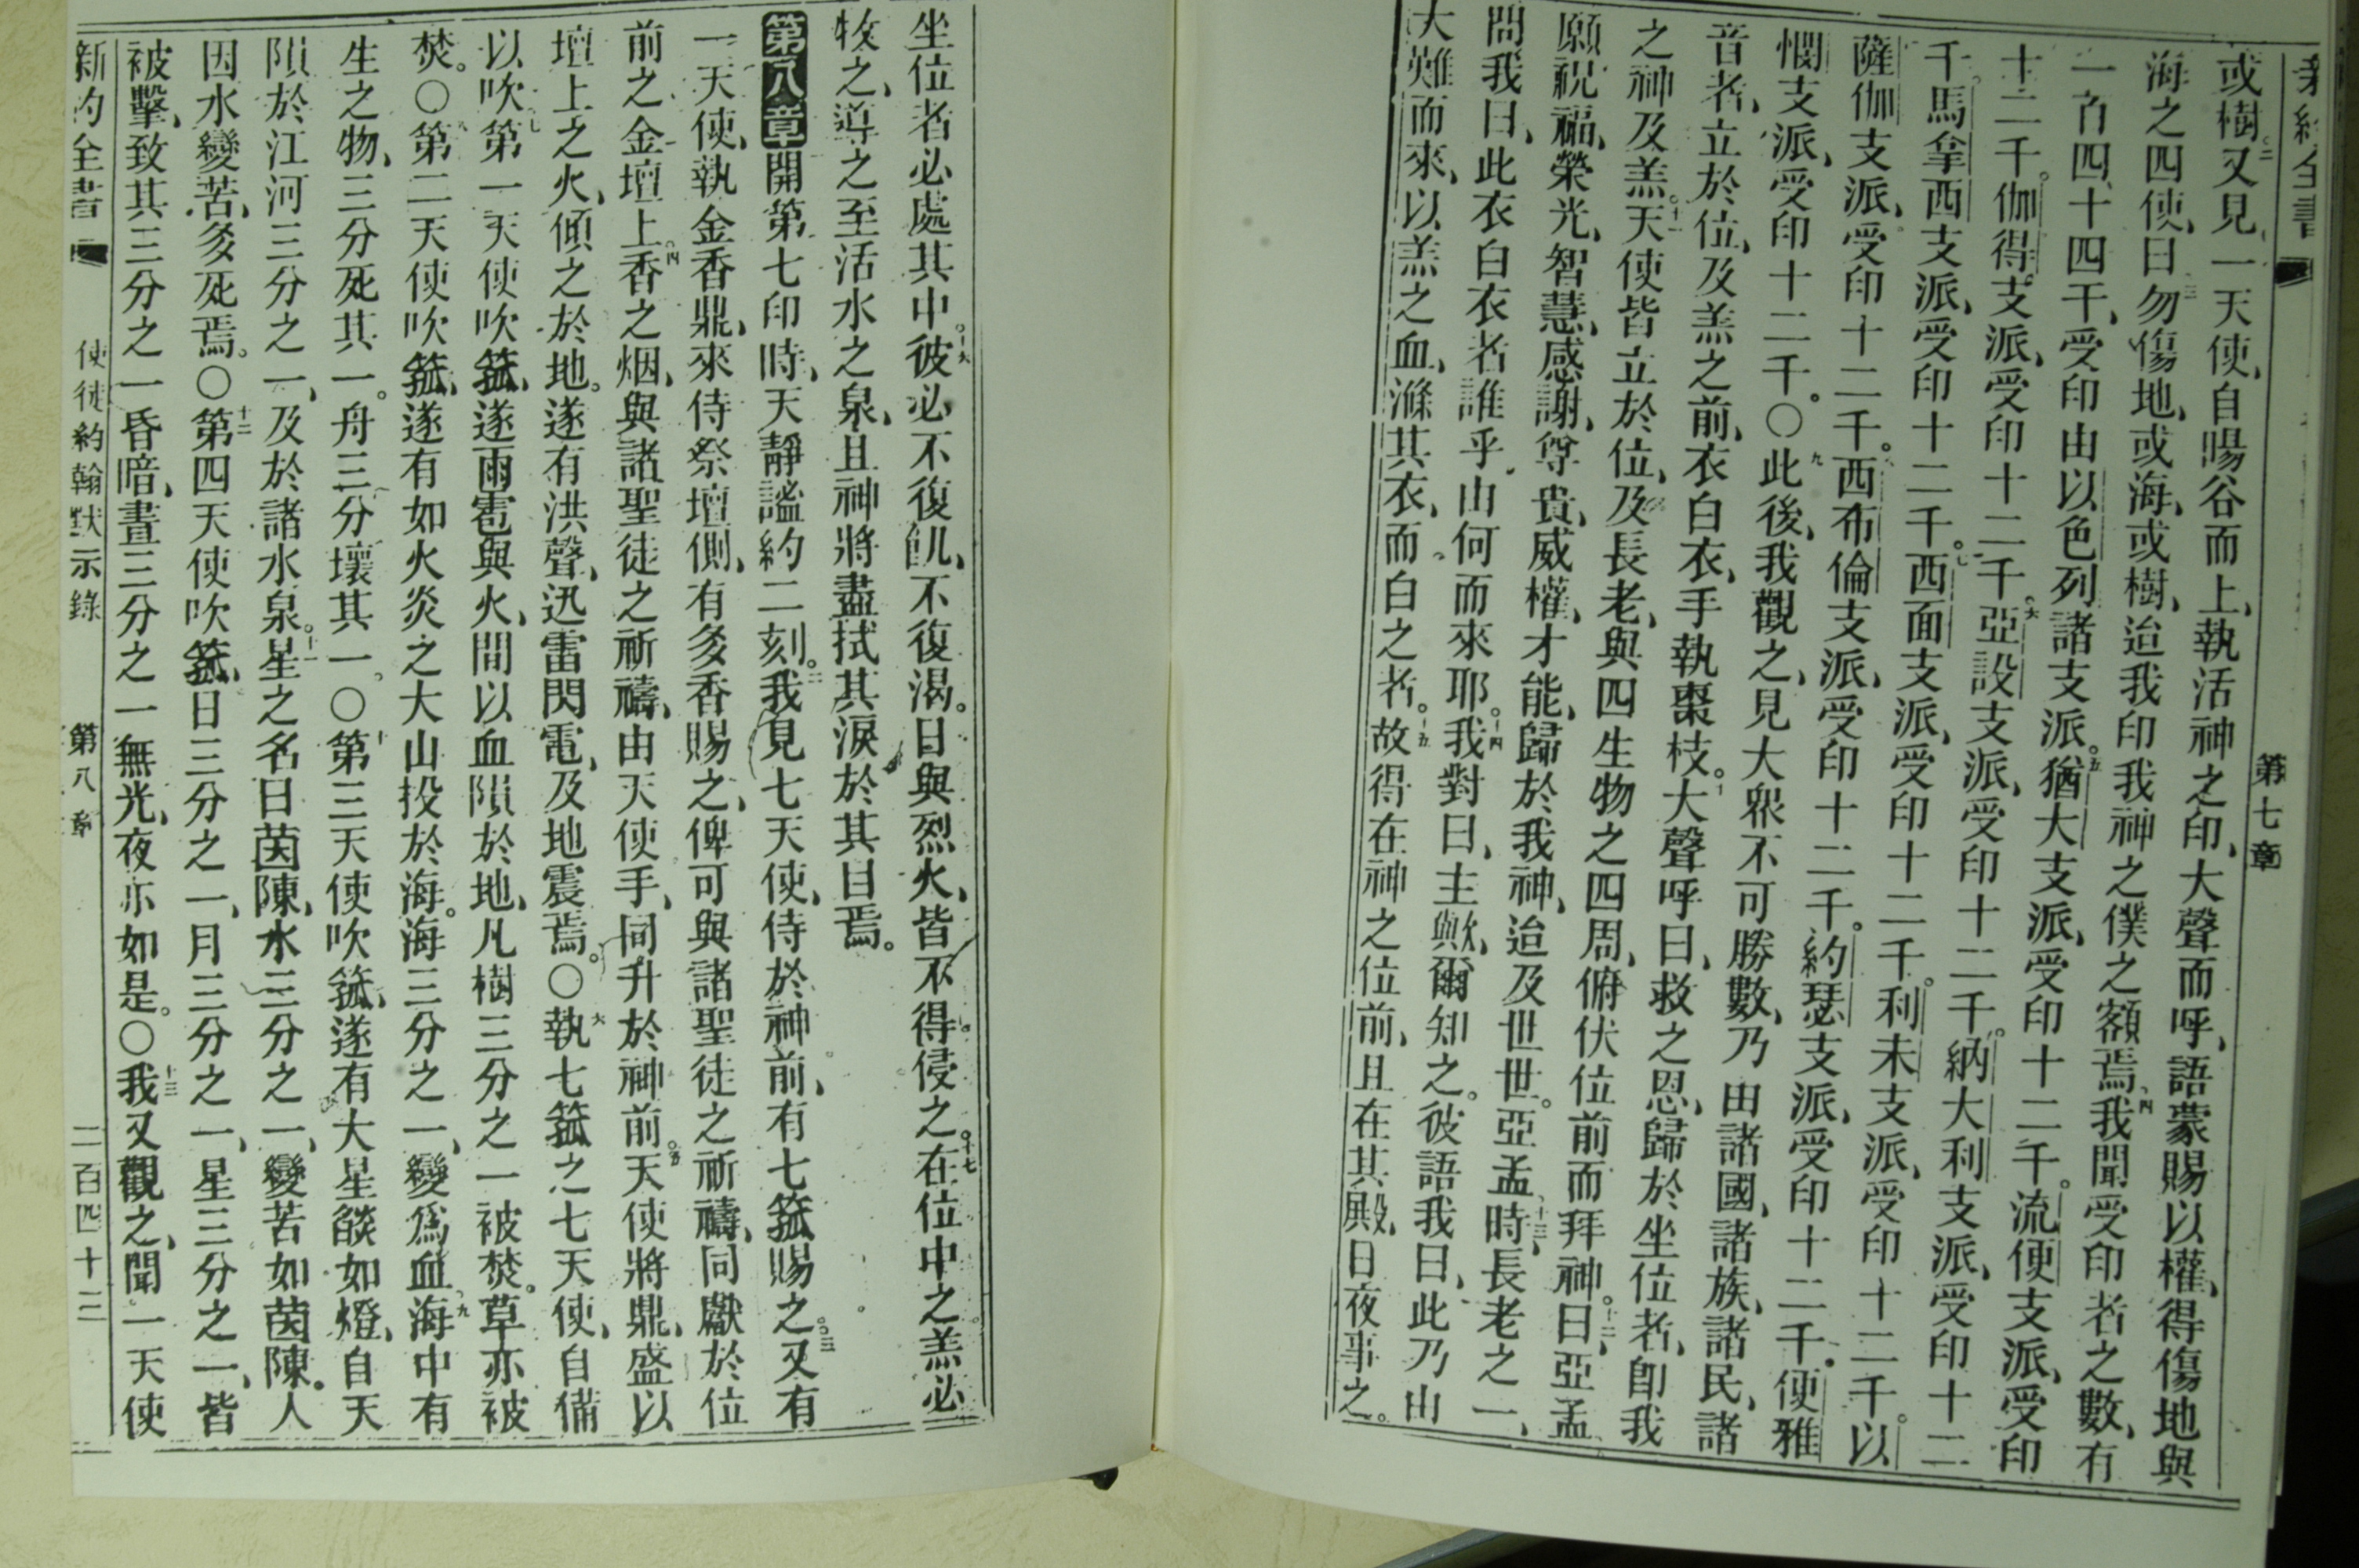 新約全書
第七章
或樹。二又見一天使、自暘谷而上、執活神之印、大聲而呼、語蒙賜以權、得傷地與
海之四使、三曰勿傷地、或海、或樹、迨我印我神之僕之額焉。四我聞受印者之數、有
一百四十四千、受印由以色列諸支派。五猶大支派、受印十二千。流便支派、受印
十二千。伽得支派、受印十二千。六亞設支派、受印十二千。納大利支派、受印十二
千。馬拿西支派、受印十二千。七西面支派、受印十二千。利未支派、受印十二千。以
薩伽支派、受印十二千。八西布倫支派、受印十二千。約瑟支派、受印十二千。便雅
憫支派、受印十二千。〇九此後、我觀之、見大眾不可勝數、乃由諸國、諸族、諸民、諸
音者、立於位、及羔之前、衣白衣、手執棗枝。十大聲呼曰、救之恩、歸於坐位者、卽我
之神及羔。十一天使皆立於位、及長老、與四生物之四周、俯伏位前而拜神。十二曰、亞孟
願祝福、榮光、智慧、感謝、尊貴、威權、才能、歸於我神、迨及世世。亞孟、十三時、長老之一、
問我曰、此衣白衣者誰乎、由何而來耶。十四我對曰、主歟、爾知之。彼語我曰、此乃由
大難而來、以羔之血、滌其衣、而白之者。十五故得在神之位前、且在其殿、日夜事之。
坐位者必處其中。十六彼必不復飢、不復渴。日與烈火、皆不得侵之。十七在位中之羔必
牧之、導之至活水之泉、且神將盡拭其淚於其目焉。
第八章開第七印時、天靜謐約二刻。二我見七天使、侍於神前、有七箛賜之。三又有
一天使、執金香鼎、來侍祭壇側、有多香賜之、俾可與諸聖徒之祈禱、同獻於位
前之金壇上。四香之烟、與諸聖徒之祈禱、由天使手、同升於神前。五天使將鼎、盛以
壇上之火、傾之於地。遂有洪聲、迅雷閃電、及地震焉。〇六執七箛之七天使、自備
以吹。七第一天使吹箛、遂雨雹與火、間以血隕於地、凡樹三分之一被焚。草亦被
焚。〇八第二天使吹箛、遂有如火炎之大山投於海。海三分之一、變爲血、九海中有
生之物、三分死其一。舟三分壞其一。〇十第三天使吹箛、遂有大星燄如燈、自天
隕於江河三分之一、及於諸水泉。十一星之名曰茵陳、水三分之一、變苦如茵陳。人
因水變苦、多死焉。〇十二第四天使吹箛、日三分之一、月三分之一、星三分之一、皆
被擊、致其三分之一昏暗、晝三分之一無光、夜亦如是。〇十三我又觀之、聞一天使
新約全書
使徒約翰默示錄
第八章
二百四十三